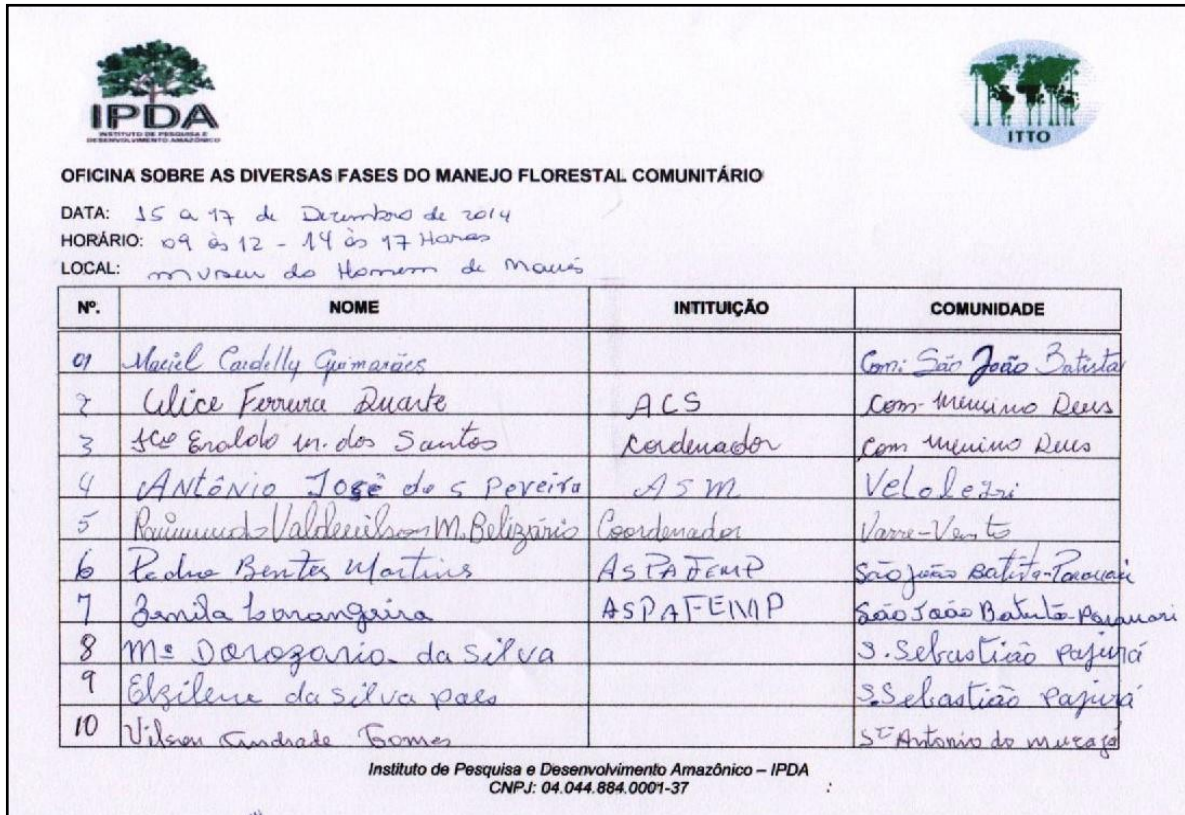 IPDA
INSTITUTO DE PESQUISA E
DESENVOLVIMENTO AMAZÔNICO
ITTO
OFICINA SOBRE AS DIVERSAS FASES DO MANEJO FLORESTAL COMUNITÁRIO
DATA: 15 a 17 de Dezembro de 2014
HORÁRIO: 09 às 12 - 14 às 17 Horas
LOCAL: museu do Homem de Maués
Nº. NOME INTITUIÇÃO COMUNIDADE
01 Maciel Guimarães Com: São João Batista
2 Ferreira Duarte ACS Com menino Deus
3 Eraldo m. dos Santos Cordenador Com menino Deus
4 ANTÔNIO José de S Pereira ASM
5 Raimundo M. Belizário Coordenador Varre-Vento
6 Pedro Bentes Martins ASPAFEMP São João Batista-Parauari
7 ASPAFEMP São João Batista-Parauari
8 Mª Dorozario da Silva S. Sebastião Pajurá
9 Elzilene da Silva paes S. Sebastião Pajurá
10 Vilson Andrade Gomes Stº Antonio do
Instituto de Pesquisa e Desenvolvimento Amazônico – IPDA
CNPJ: 04.044.884.0001-37